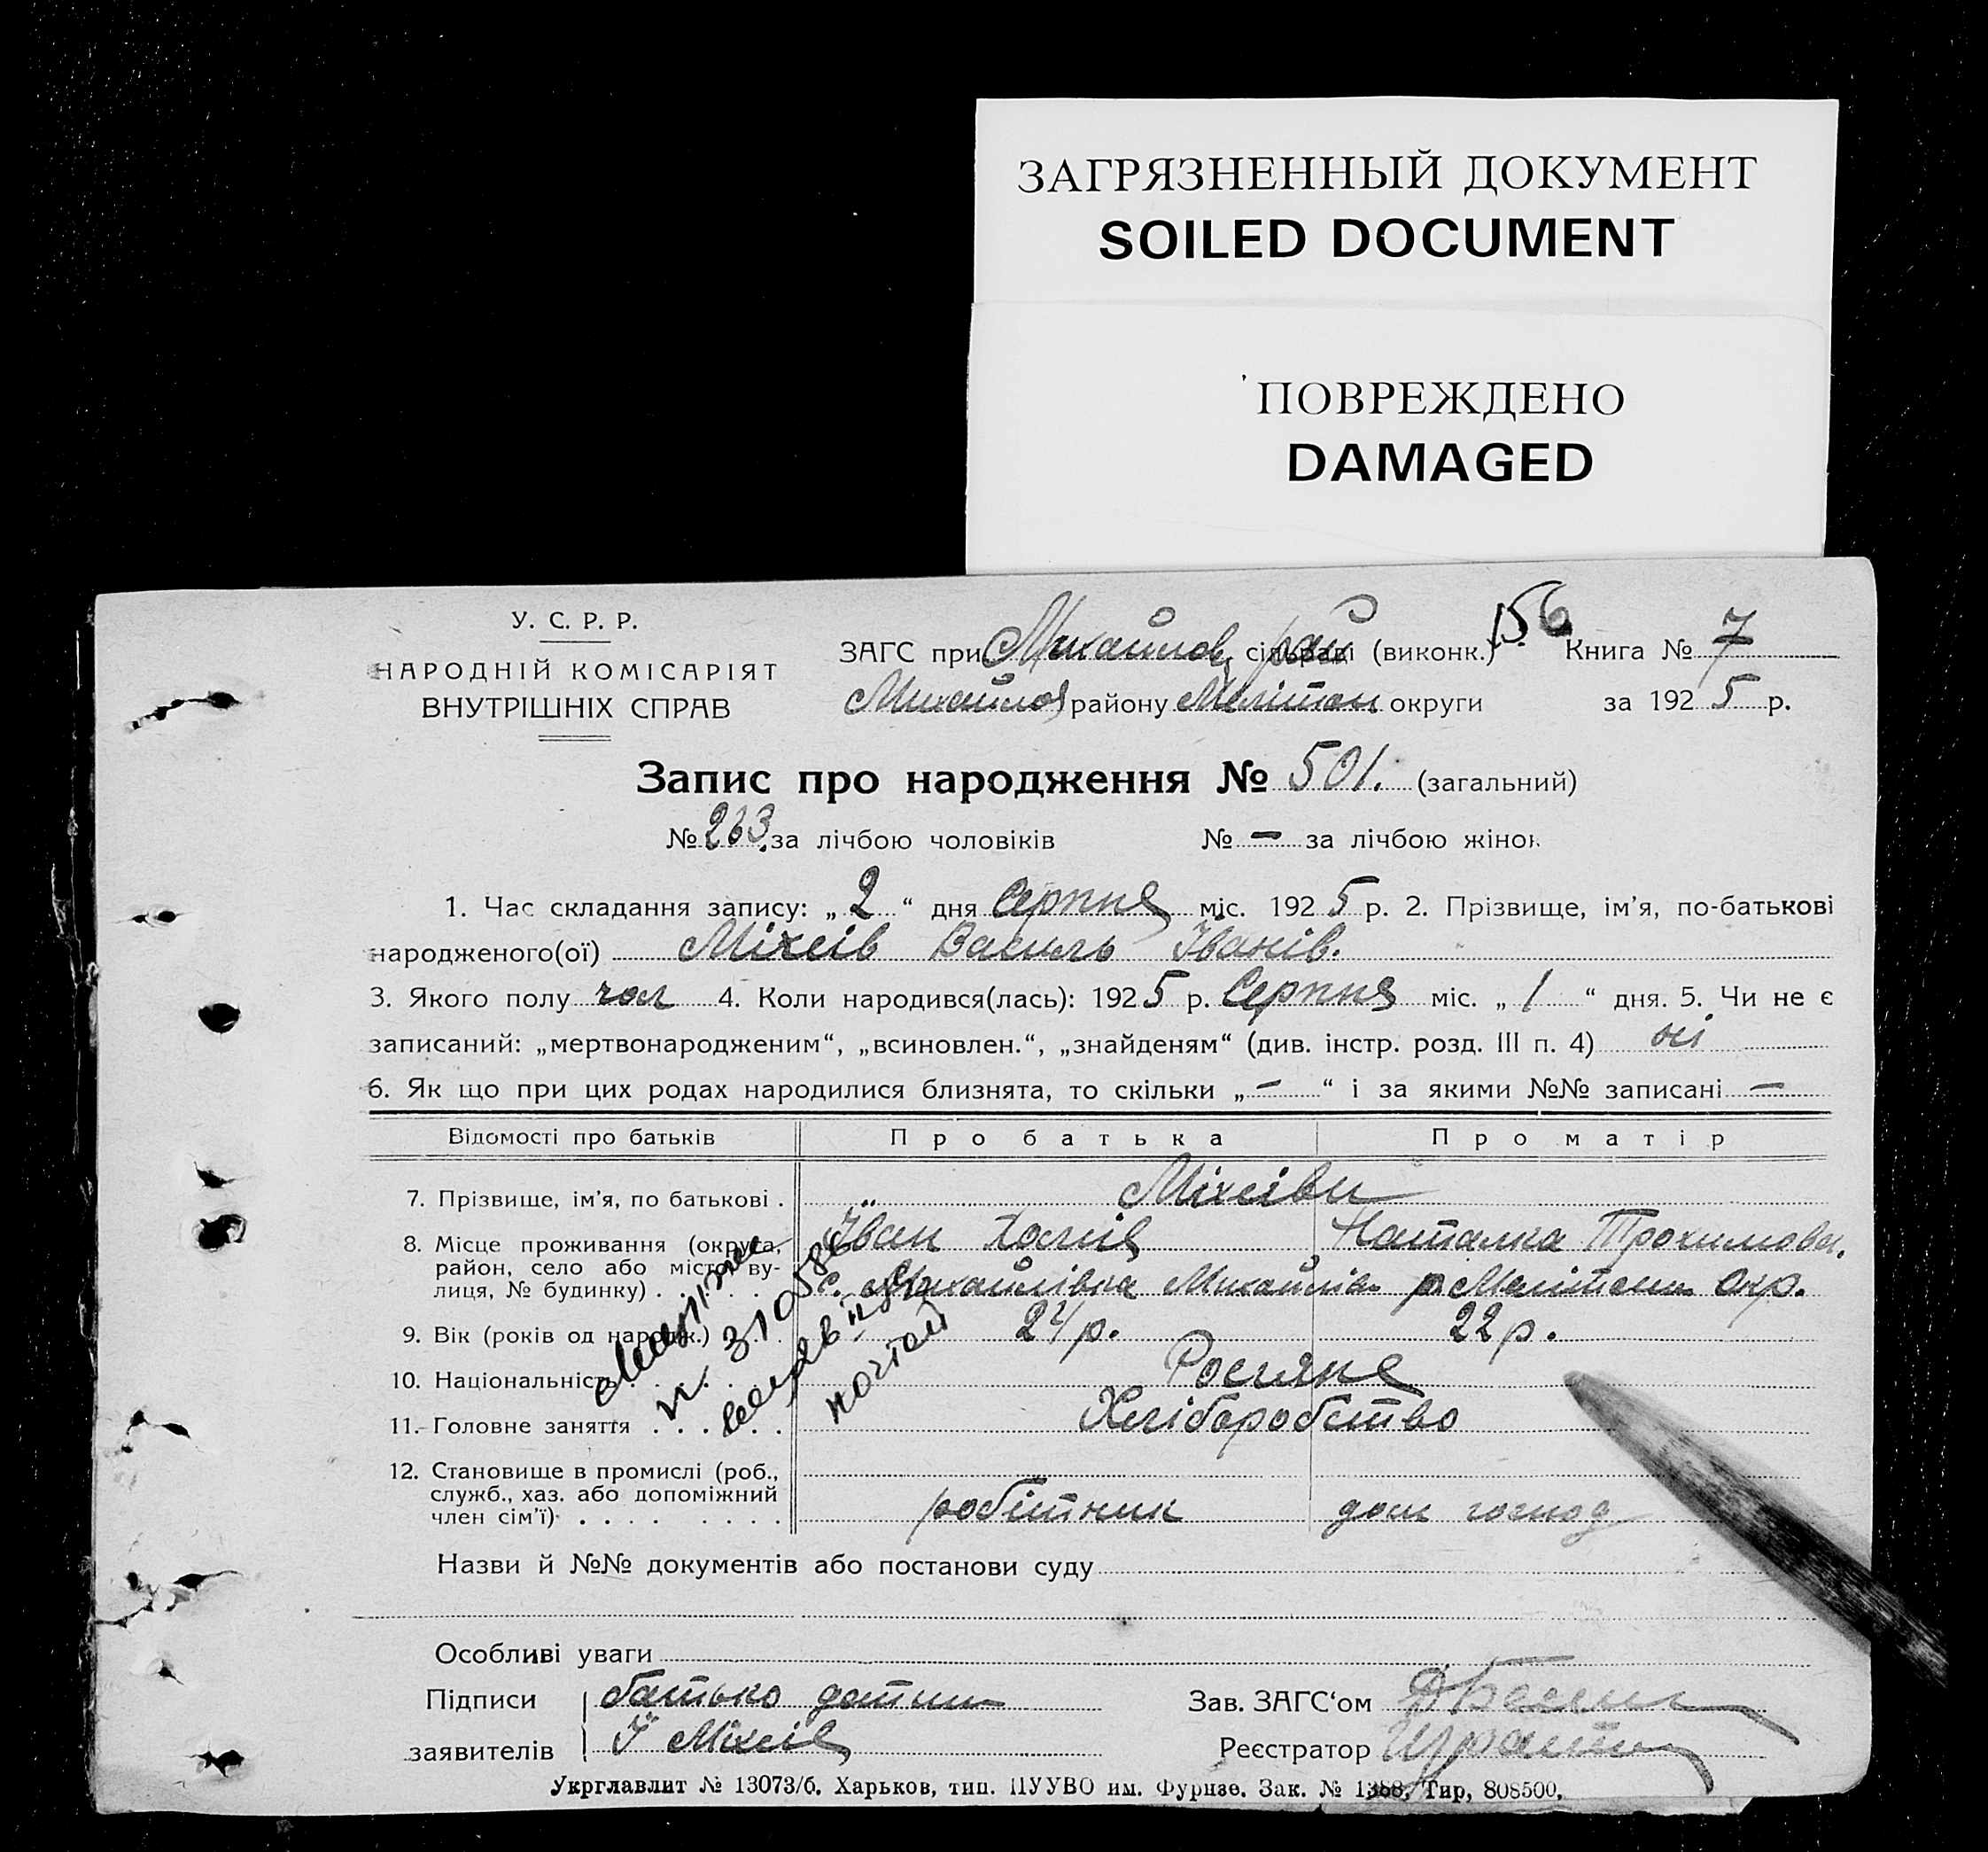 ЗАГРЯЗНЕННЫЙ ДОКУМЕНТ
SOILED DOCUMENT
ПОВРЕЖДЕНО
DAMAGED
156
У. С. Р. Р.
НАРОДНІЙ КОМІСАРІЯТ
ВНУТРІШНІХ СПРАВ
ЗАГС при Михайлов. рай сільраді (виконк.) Книга № 7
Михайлов району Мелітоп округи за 1925 р.
Запис про народження № 501. (загальний)
№ 263. за лічбою чоловіків № — за лічбою жінок
1. Час складання запису: „2“ дня Серпня міс. 1925 р. 2. Прізвище, ім'я, по-батькові
народженого(ої) Міхеів Василь Іванів.
3. Якого полу чол 4. Коли народився(лась): 1925 р. Серпня міс. „1“ дня. 5. Чи не є
записаний: „мертвонародженим“, „всиновлен.“, „знайденям“ (див. інстр. розд. III п. 4) ні
6. Як що при цих родах народилися близнята, то скільки „—“ і за якими №№ записані —
Відомості про батьків Про батька Про матір
7. Прізвище, ім'я, по батькові . Міхеіви
Іван Наталка Трохимова.
8. Місце проживання (округа, район, село або місто, вулиця, № будинку) . с. Михайлівка Михайлів р. Мелітоп окр.
9. Вік (років од народж.) 24 р. 22 р.
10. Національність Росіяне
11. Головне заняття . . . Хліборобство
12. Становище в промислі (роб.,
служб., хаз. або допоміжний
член сім'ї) . . . . робітник дом господ
Назви й №№ документів або постанови суду
Особливі уваги
Підписи батько дитини Зав. ЗАГС'ом
заявителів І Міхеів Реєстратор
Укрглавлит № 13073/б. Харьков, тип. ПУУВО им. Фрунзе. Зак. № 1388. Тир, 808500.